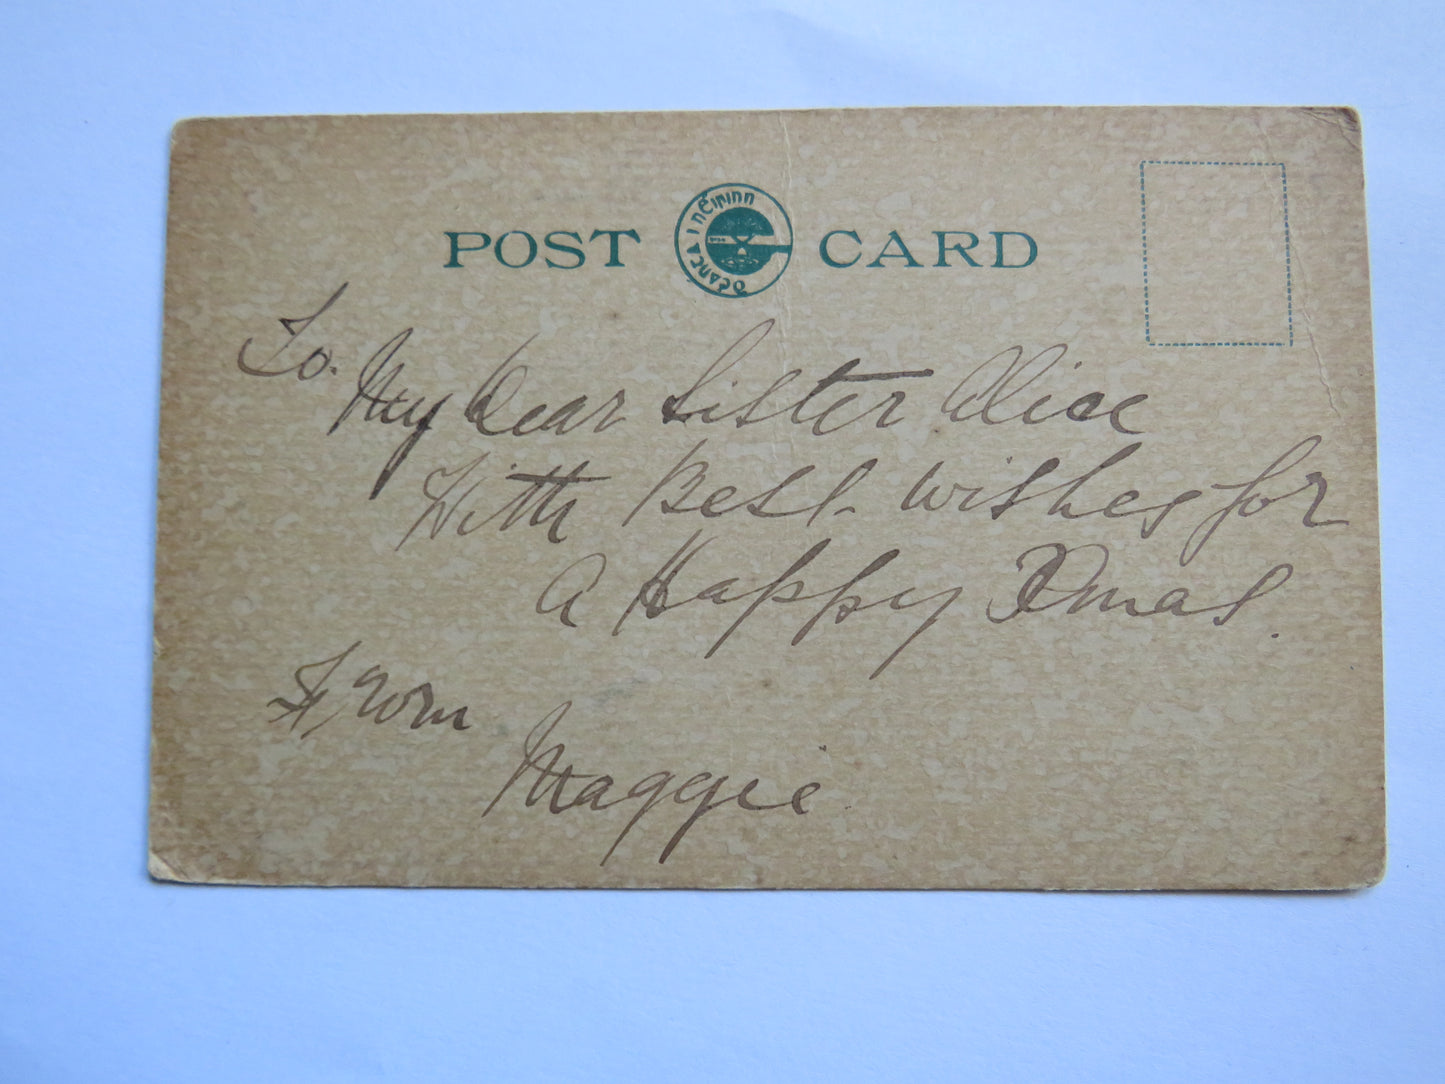 POST CARD
Déanta i nÉirinn
To. My Dear Sister Alice
With Best Wishes for
A Happy Xmas.
From
Maggie